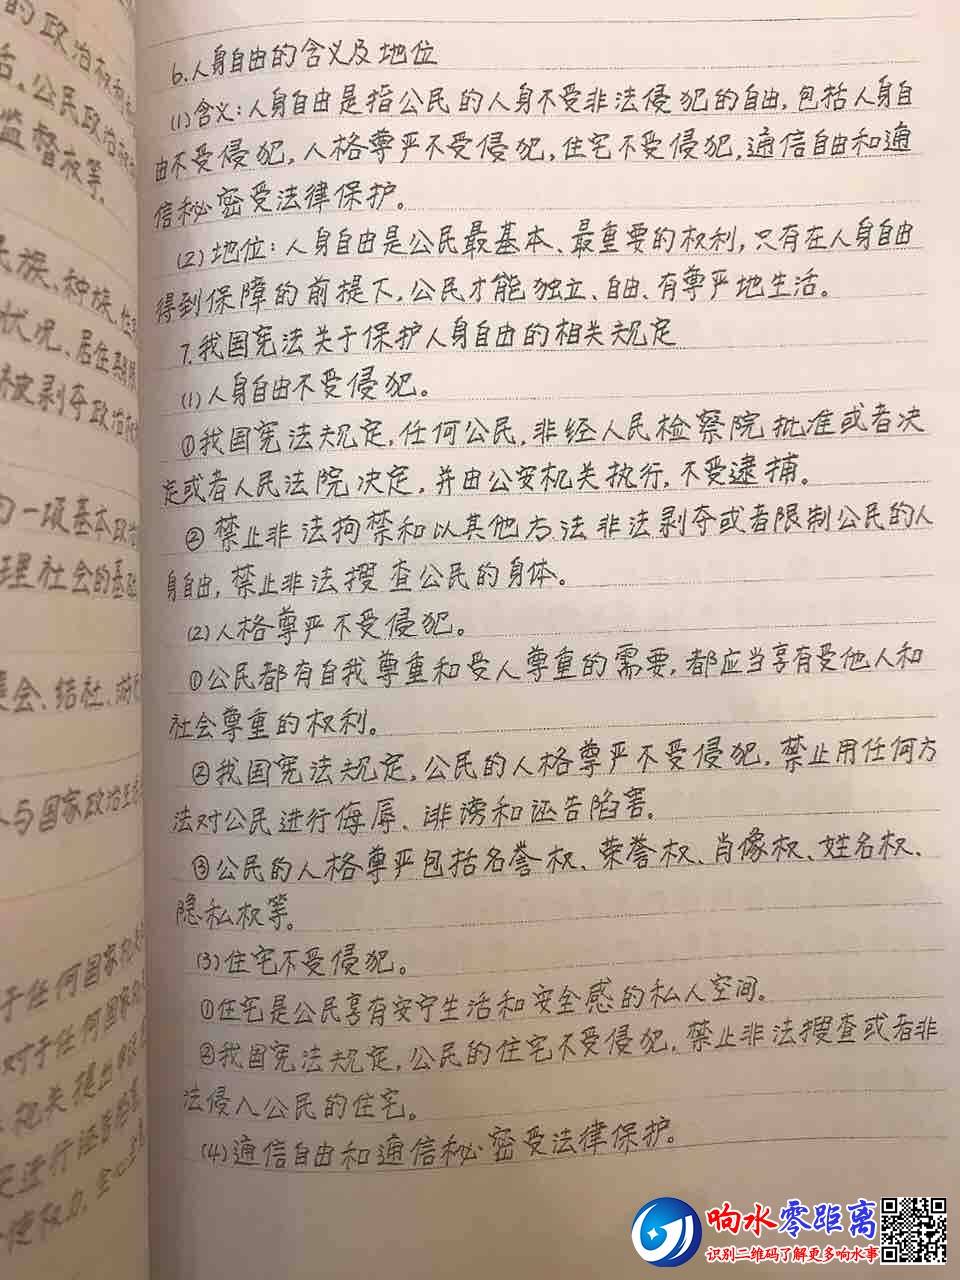 的政治权利
活。公民政治
监督权等。
民族、种族、性
状况、居住期限
被剥夺政治
的一项基本政治
理社会的基础
集会、结社、游
与国家政治生活
于任何国家机关
对于任何国家
机关提出
6.人身自由的含义及地位
(1)含义:人身自由是指公民的人身不受非法侵犯的自由,包括人身自
由不受侵犯,人格尊严不受侵犯,住宅不受侵犯,通信自由和通
信秘密受法律保护。
(2)地位:人身自由是公民最基本、最重要的权利,只有在人身自由
得到保障的前提下,公民才能独立、自由、有尊严地生活。
7.我国宪法关于保护人身自由的相关规定
(1)人身自由不受侵犯。
①我国宪法规定,任何公民,非经人民检察院批准或者决
定或者人民法院决定,并由公安机关执行,不受逮捕。
②禁止非法拘禁和以其他方法非法剥夺或者限制公民的人
身自由,禁止非法搜查公民的身体。
(2)人格尊严不受侵犯。
①公民都有自我尊重和受人尊重的需要,都应当享有受他人和
社会尊重的权利。
②我国宪法规定,公民的人格尊严不受侵犯,禁止用任何方
法对公民进行侮辱、诽谤和诬告陷害。
③公民的人格尊严包括名誉权、荣誉权、肖像权、姓名权、
隐私权等。
(3)住宅不受侵犯。
①住宅是公民享有安宁生活和安全感的私人空间。
②我国宪法规定,公民的住宅不受侵犯,禁止非法搜查或者非
法侵入公民的住宅。
(4)通信自由和通信秘密受法律保护。
响水零距离
识别二维码了解更多响水事